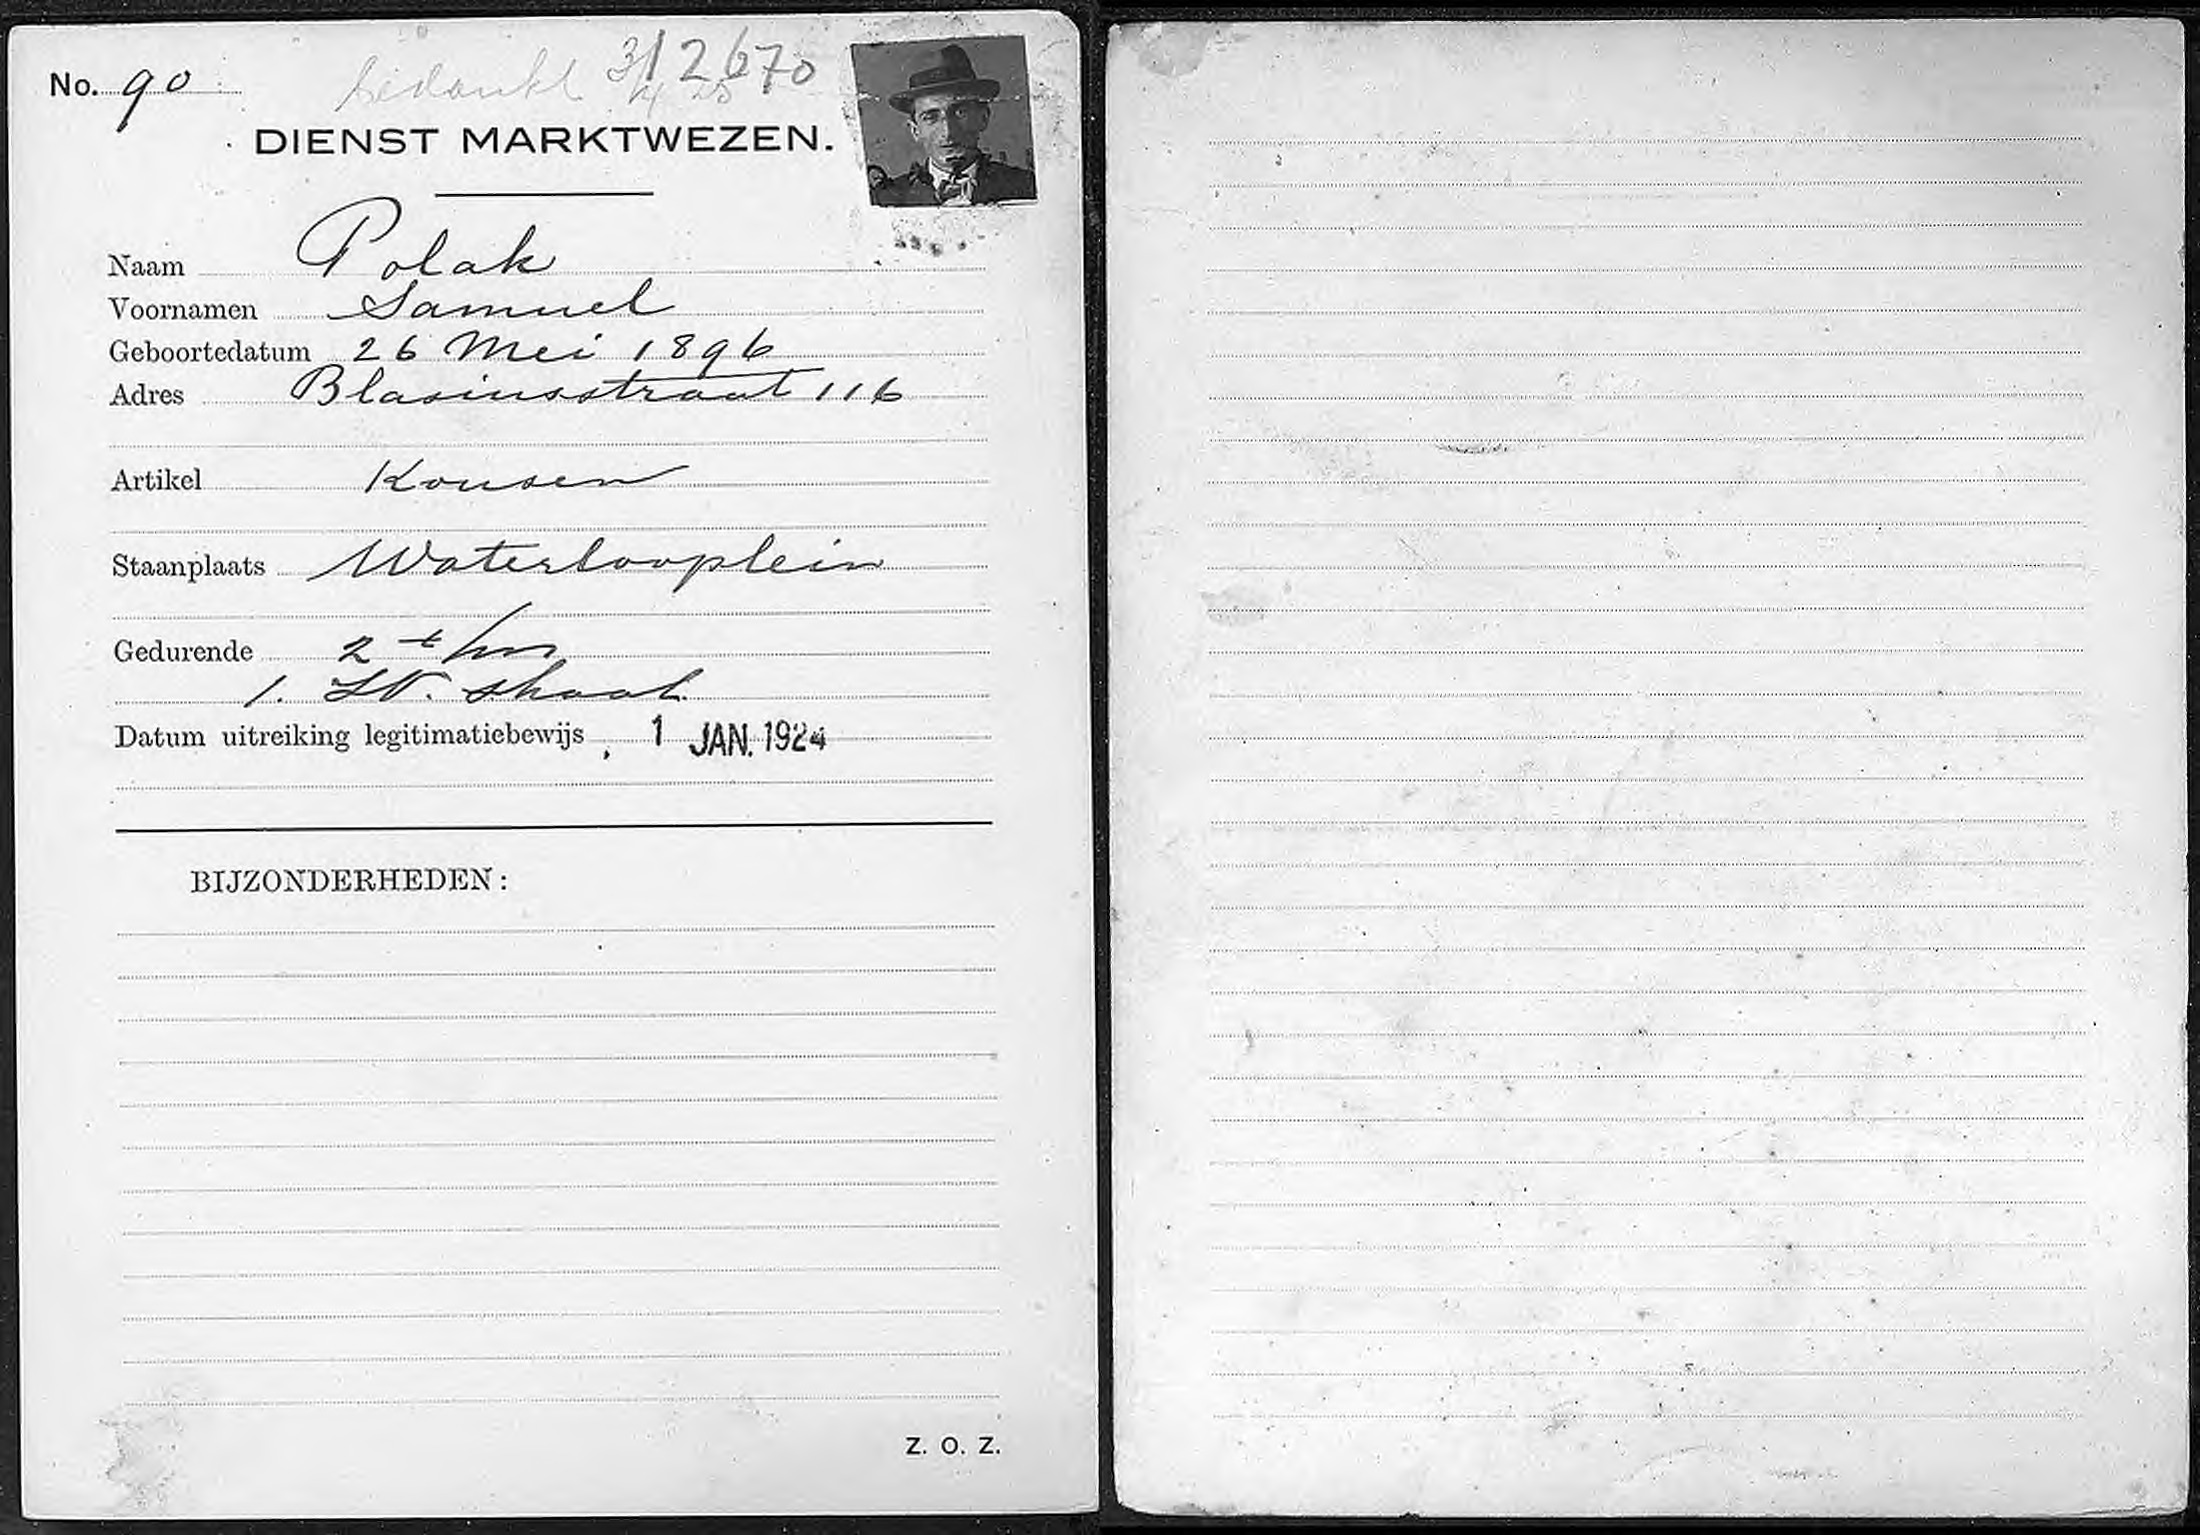 No. 90
bedankt 31/4 25 2670
DIENST MARKTWEZEN.
Naam Polak
Voornamen Samuel
Geboortedatum 26 Mei 1896
Adres Blasiusstraat 116
Artikel Kousen
Staanplaats Waterlooplein
Gedurende 2
1.
Datum uitreiking legitimatiebewijs 1 JAN. 1924
BIJZONDERHEDEN:
Z. O. Z.